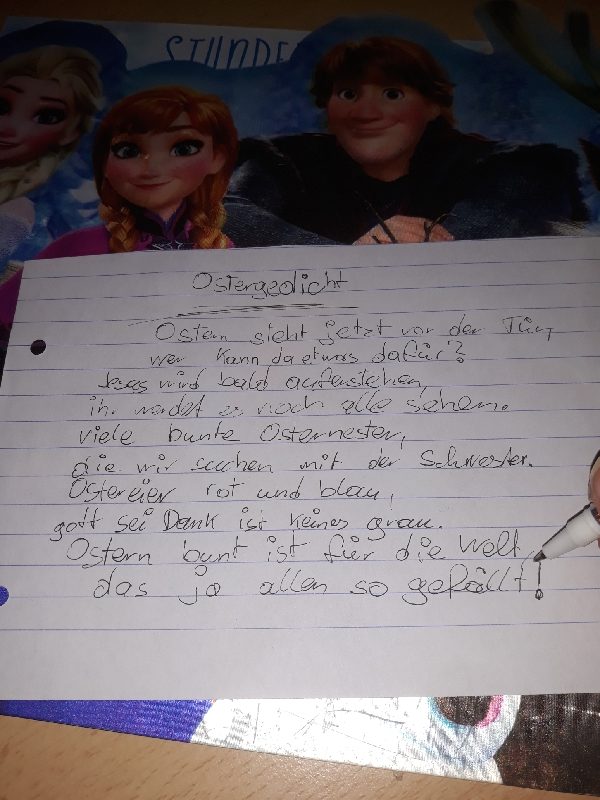 STUNDE
Ostergedicht
Ostern steht jetzt vor der Tür,
wer kann da etwas dafür?
Jesus wird bald auferstehen,
ihr werdet es noch alle sehen.
viele bunte Osternester,
die wir suchen mit der Schwester.
Ostereier rot und blau,
gott sei Dank ist keines grau.
Ostern bunt ist für die Welt,
das ja allen so gefällt!